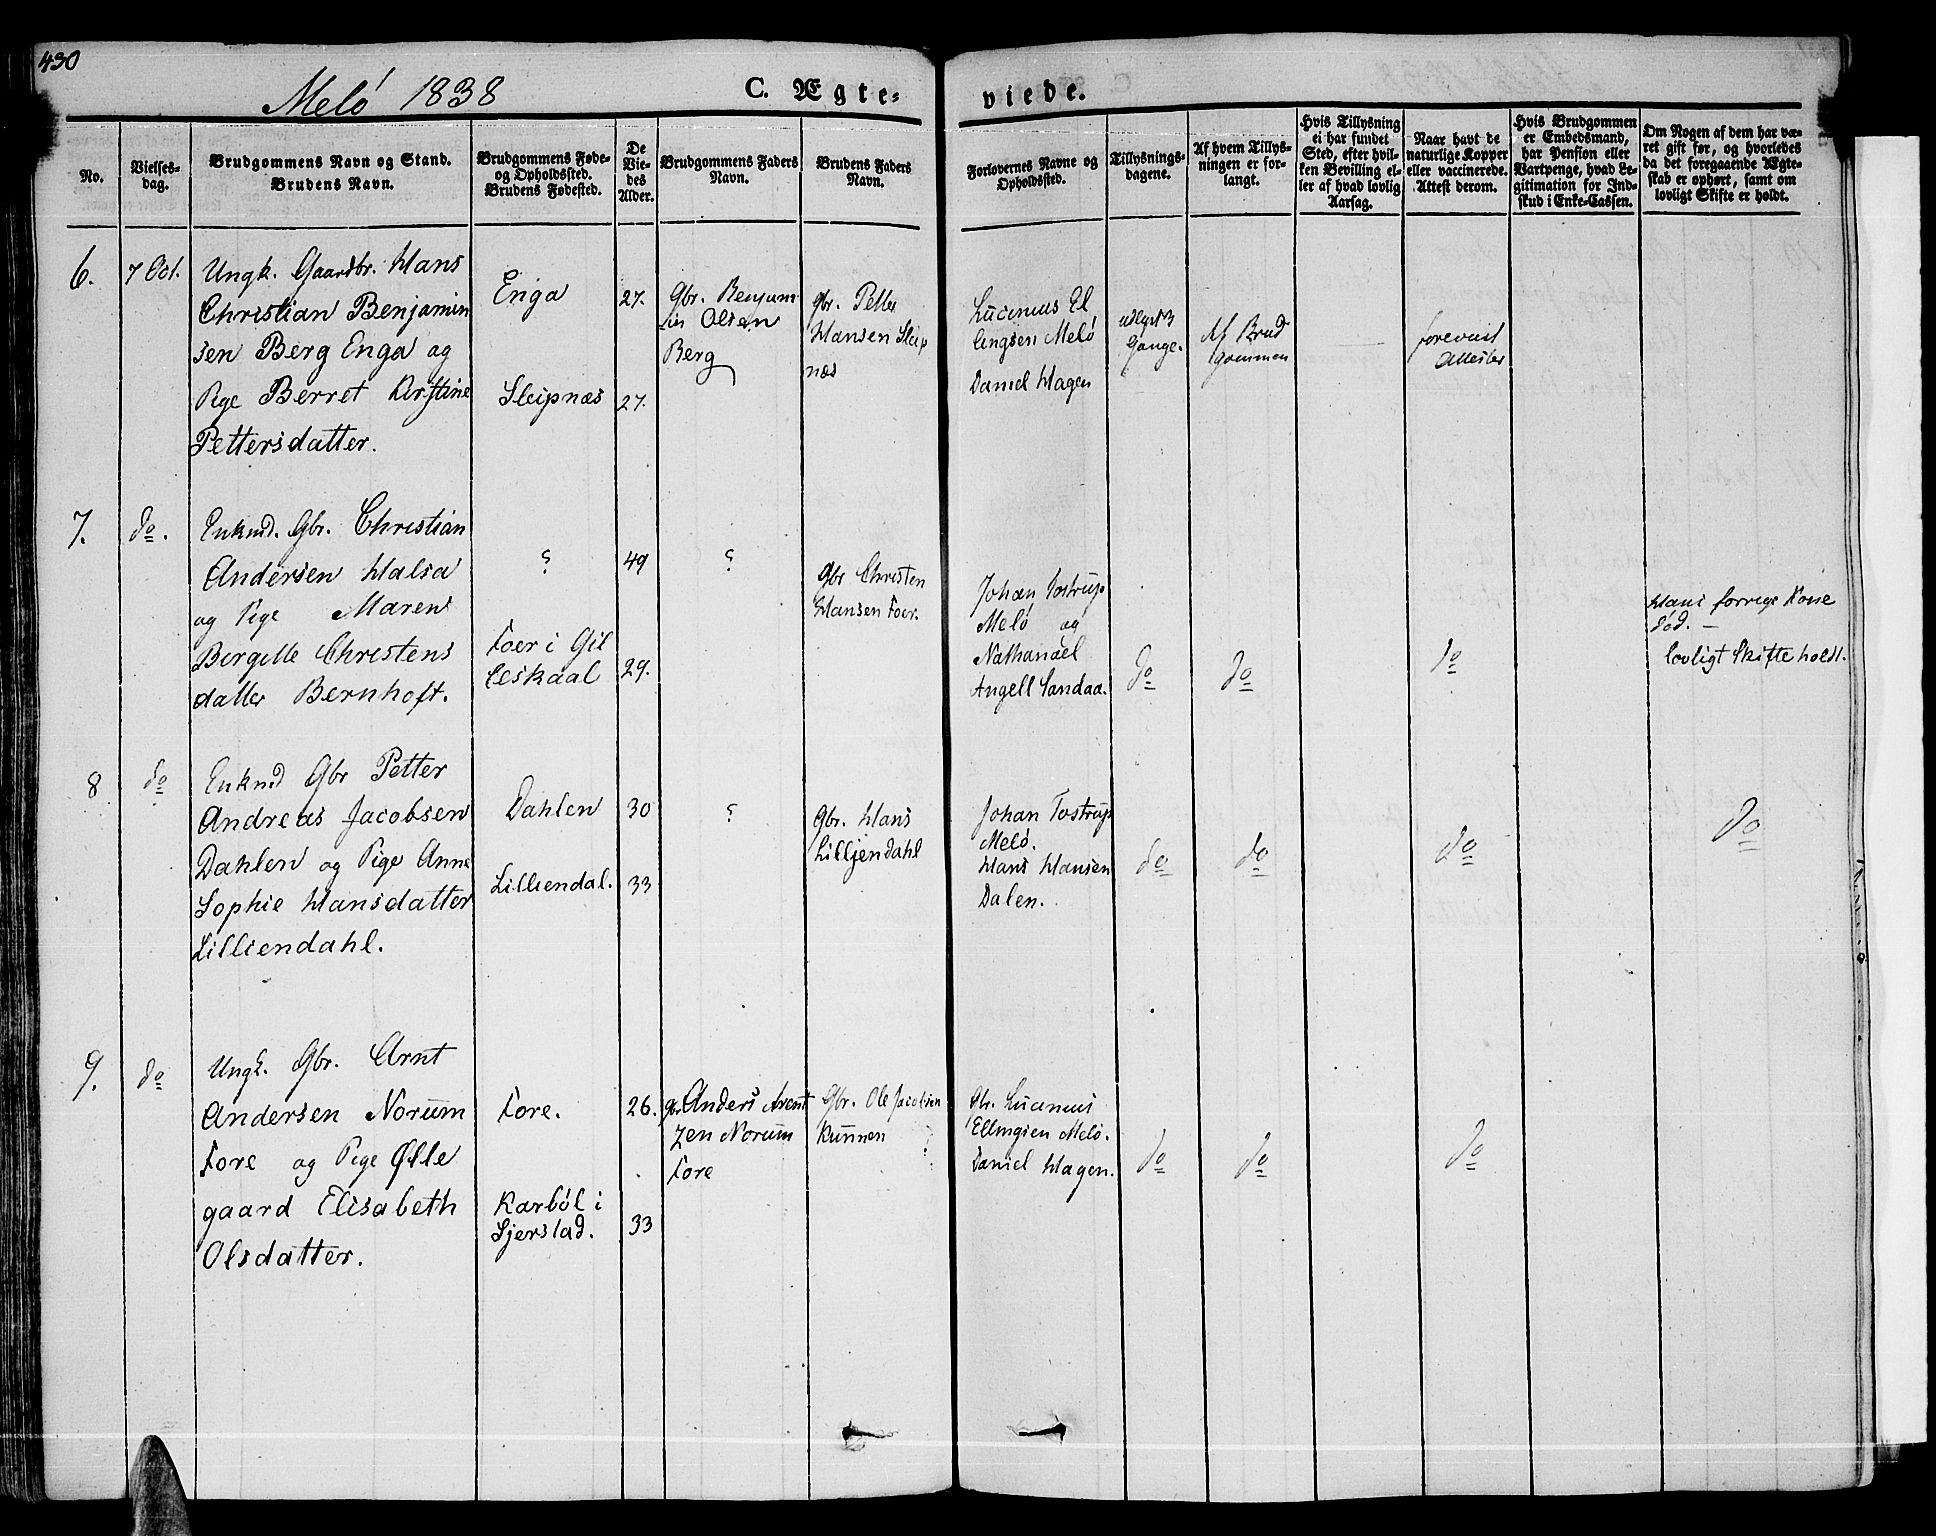 430
Melö 1838
C. Ægte-
viede.
No.
Vielses-
dag.
Brudgommens Navn og Stand.
Brudens Navn.
Brudgommens Føde-
og Opholdssted.
Brudens Fødested.
De
Vie-
des
Alder.
Brudgommens Faders
Navn.
Brudens Faders
Navn.
Forlovernes Navne og
Opholdssted.
Tillysnings-
dagene.
Af hvem Tillys-
ningen er for-
langt.
Hvis Tillysning
ei har fundet
Sted, efter hvil-
ken Bevilling el-
ler af hvad lovlig
Aarsag.
Naar havt de
naturlige Kopper
eller vaccinerede.
Attest derom.
Hvis Brudgommen
er Embedsmand,
har Pension eller
Vartpenge, hvad Le-
gitimation for Ind-
skud i Enke-Cassen.
Om Nogen af dem har væ-
ret gift før, og hvorledes
da det foregaaende Ægte-
skab er ophørt, samt om
lovligt Skifte er holdt.
6.
7 Oct.
Ungk. Gaardbr. Hans
Christian Benjamin
sen Berg Enga og
Pige Berret Kirstine
Pettersdatter.
Enga
Sleipnæs
27.
27.
Gbr. Benjam
in Olsen
Berg
gbr. Petter
Hansen Sleip
næs
Lucinus El
lingsen Melö
Daniel Hagen
udlyst 3
Gange.
Af Brud
gommen
forevist
Attester
7.
do.
Enkmd. Gbr. Christian
Andersen Halsa
og Pige Maren
Birgitte Christens
datter Bernhoft.
?
Foer i Gil
leskaal
49
29.
?
Gbr Christen
Hansen Foer.
Johan Tostrup
Melö og
Nathanael
Angell Sandaa.
do
do
do
Hans forrige Kone
död. –
lovligt Skifte holdt.
8
do
Enkmd Gbr Petter
Andreas Jacobsen
Dahlen og Pige Anne
Sophie Hansdatter
Lilliendahl.
Dahlen
Lilliendal.
30
33
?
Gbr. Hans
Lilljendahl
Johan Tostrup
Melö.
Hans Hansen
Dalen.
do
do
do
do
9.
do
Ungk. Gbr. Arnt
Andersen Norum
Fore og Pige Ølle
gaard Elisabeth
Olsdatter.
Fore.
Karböl i
Sjerstad.
26.
33
gbr Anders Arent
zen Norum
Fore
Gbr. Ole Jacobsen
Kunnen ?
Gbr. Lucinus
Ellingsen Melö.
Daniel Hagen.
do
do
do